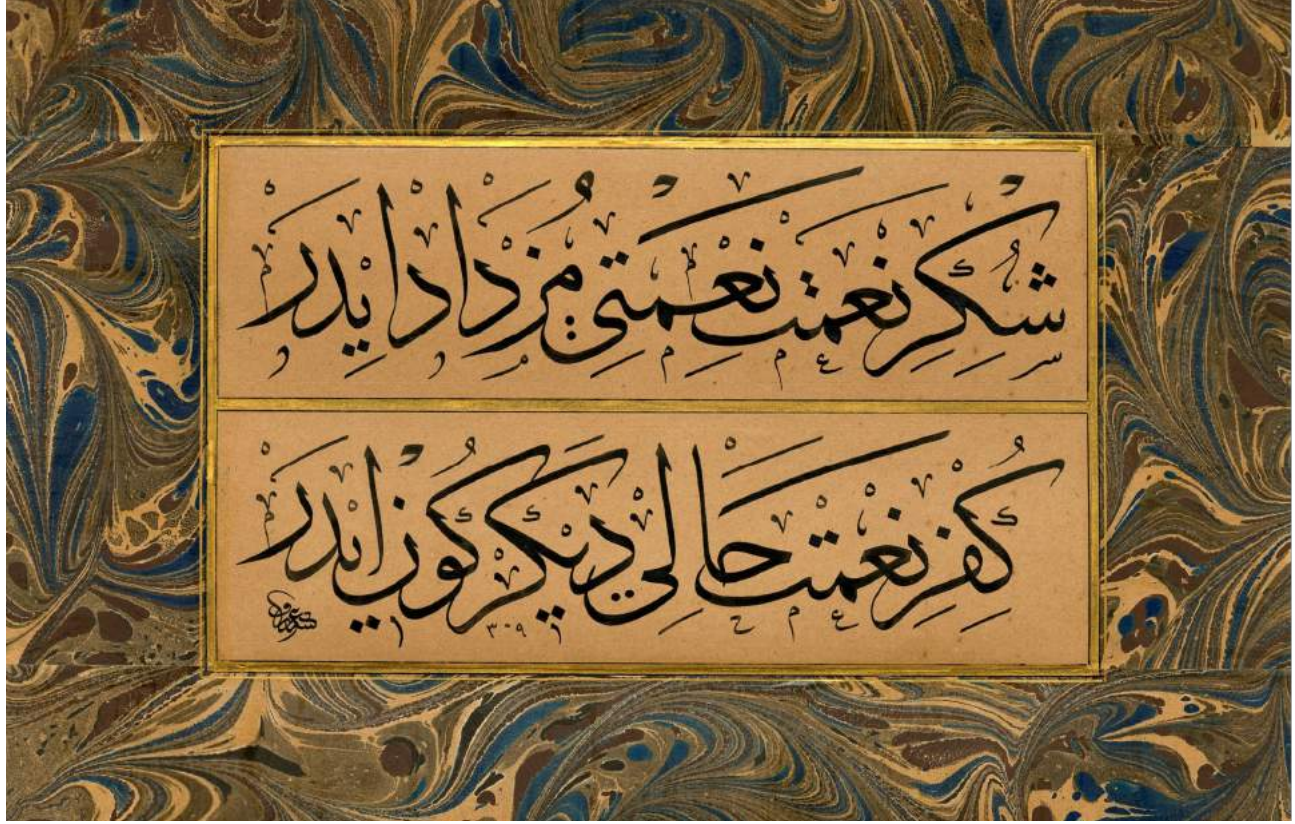 شُكْرِ نِعْمَتْ نِعْمَتِي مُزْدَادْ اِيدَرْ
كُفْرِ نِعْمَتْ حَالِي دِيكَرْكُونْ اِيدَرْ
٣٠٩